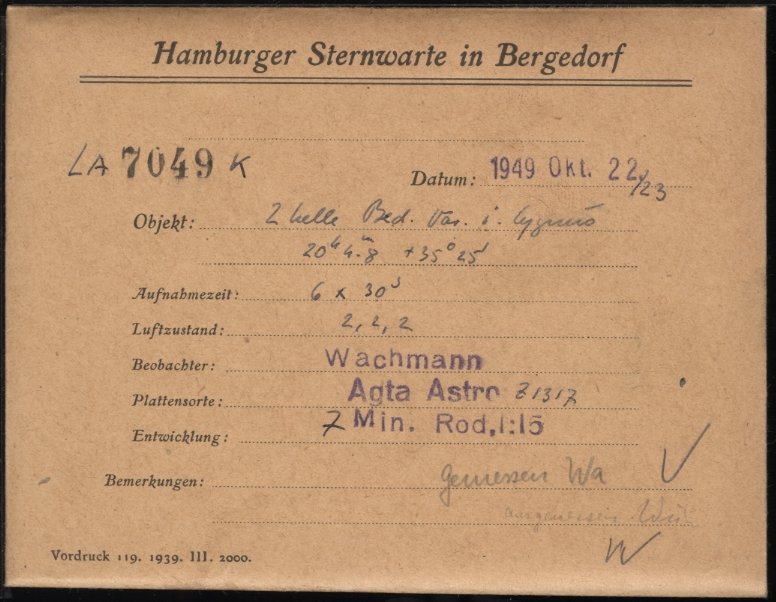 Hamburger Sternwarte in Bergedorf
LA 7049 K
Datum: 1949 Okt. 22./23
Objekt: 2 helle Bed. Var. i. Cygnus
20ʰ 4ᵐ.8 +35° 25'
Aufnahmezeit: 6 x 30ˢ
Luftzustand: 2, 2, 2
Beobachter: Wachmann
Plattensorte: Agfa Astro Z1317
Entwicklung: 7 Min. Rod, 1:15
Bemerkungen: Gemessen Wa
ausgemessen
W
Vordruck 119. 1939. III. 2000.